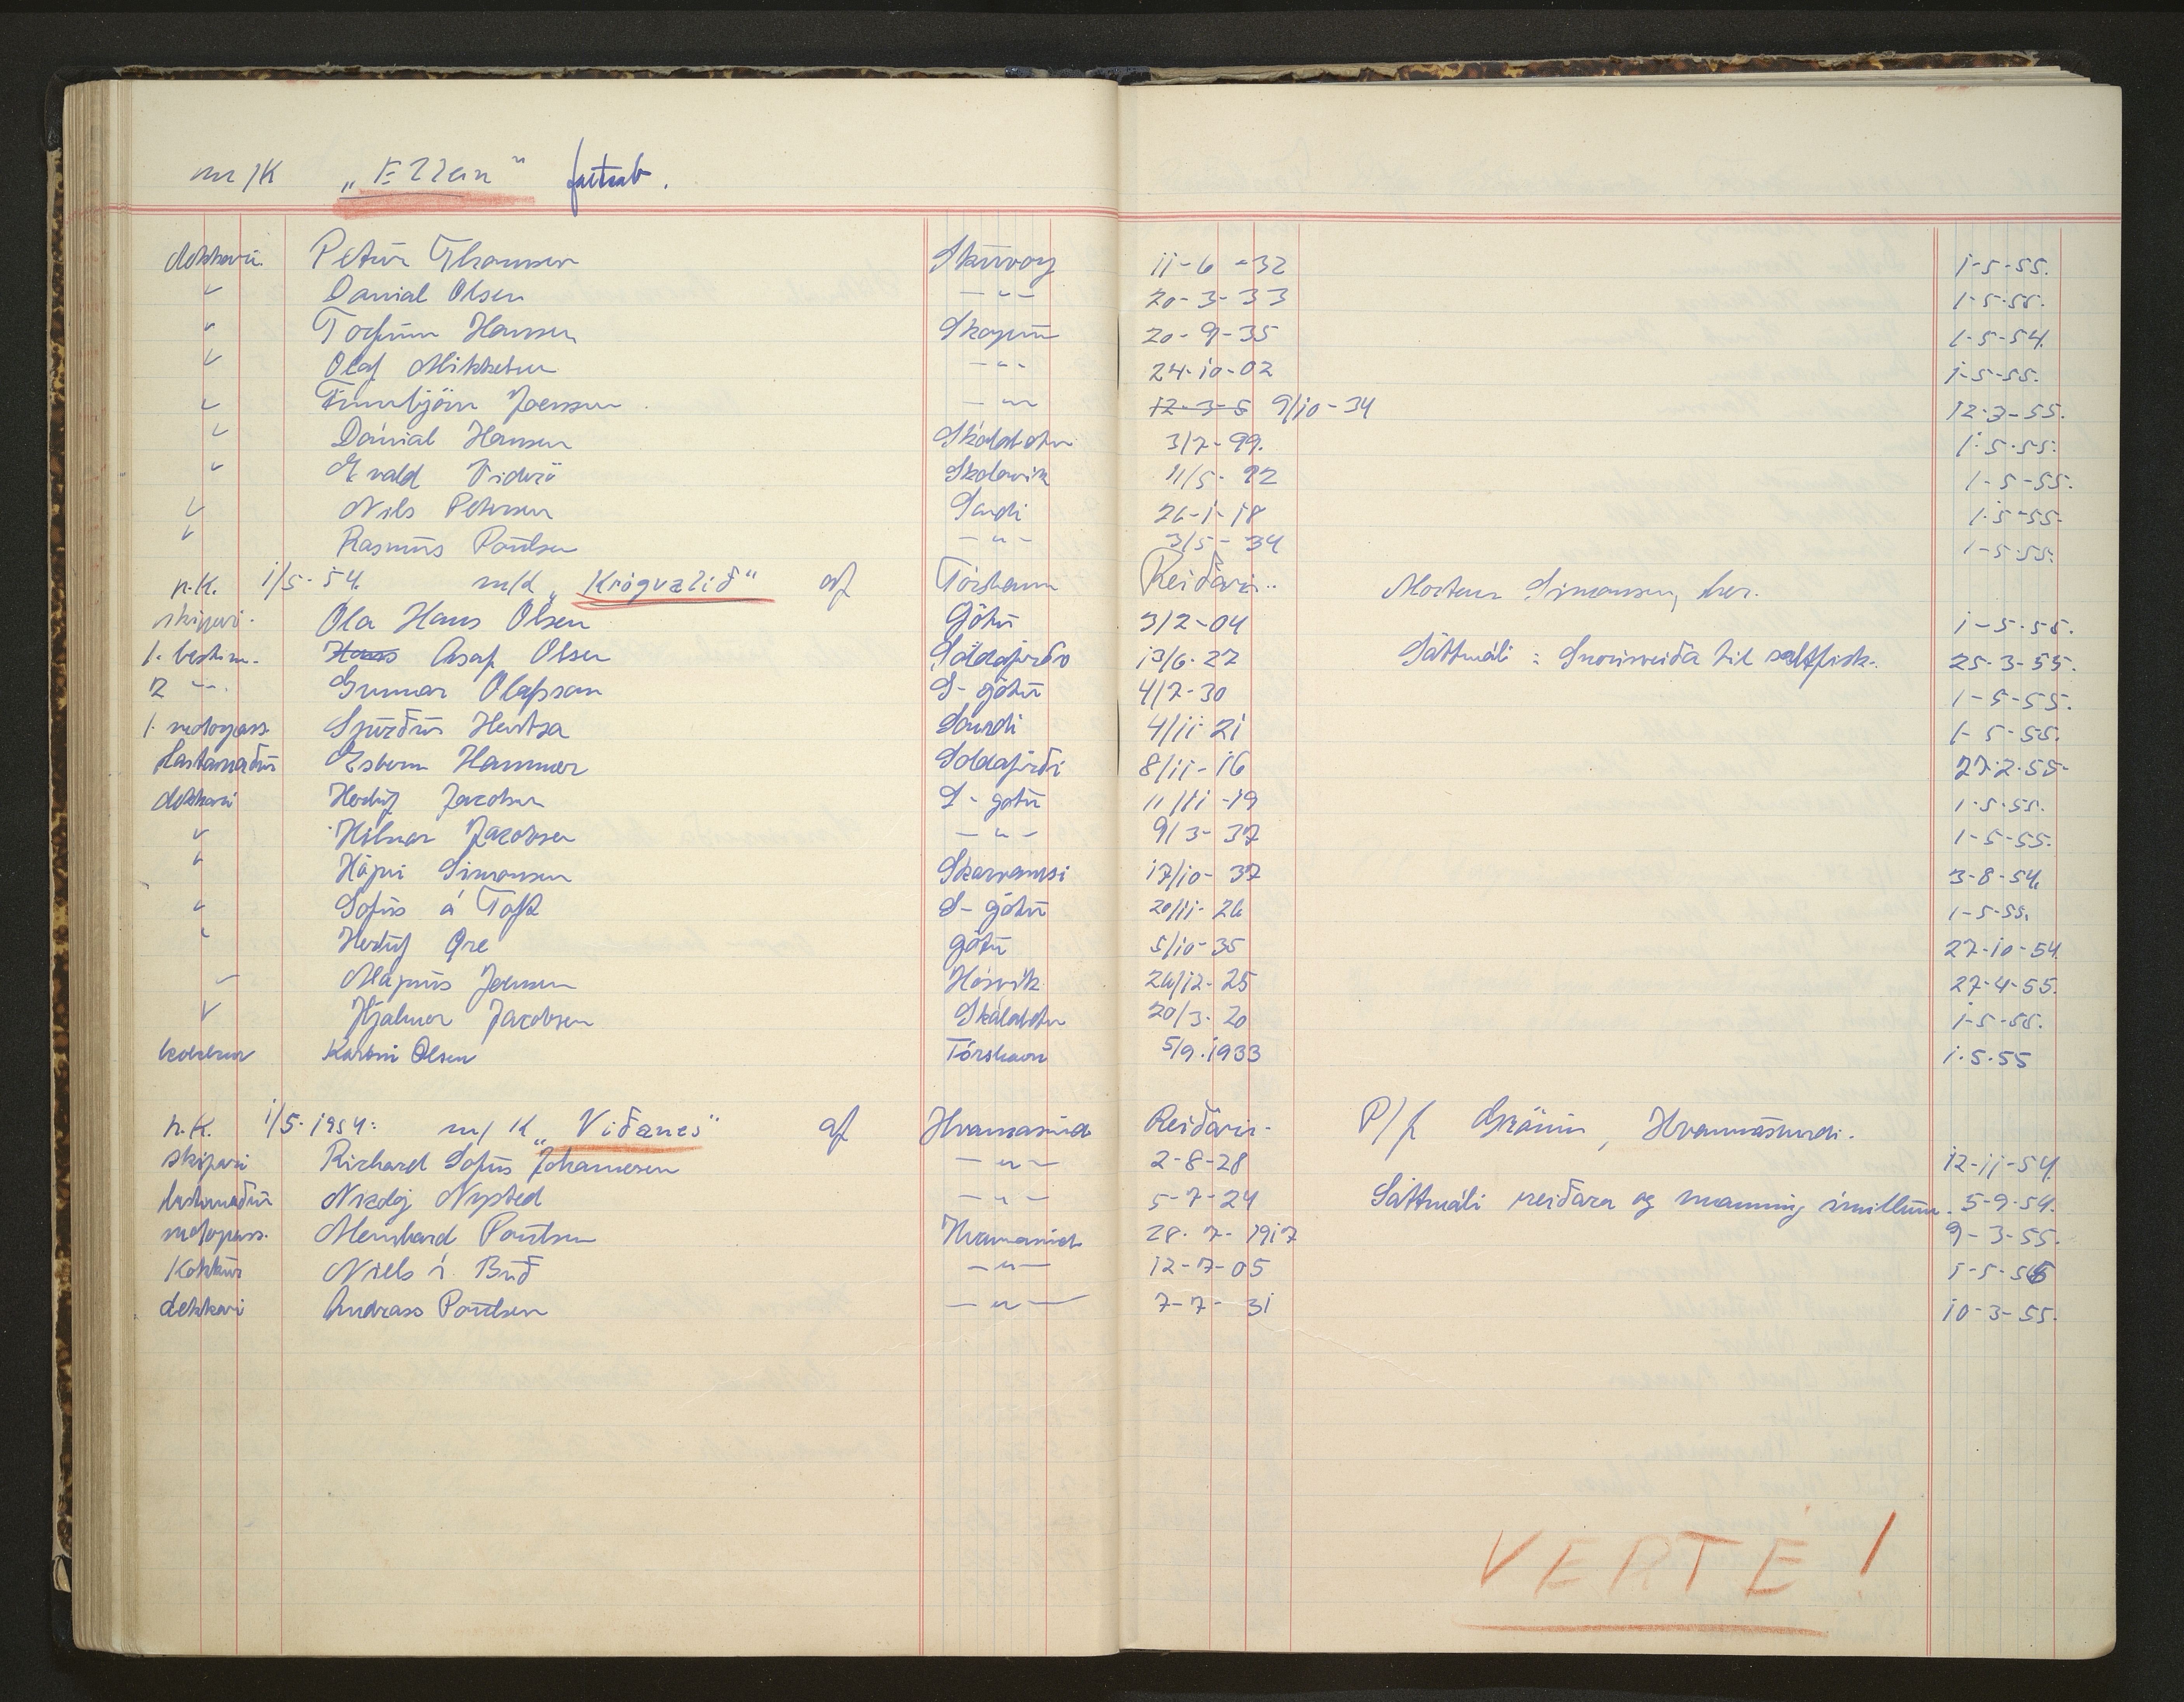 m/K „Ellen" fortsat.
dekkari Petur Thomsen Skúvoy 11-6-32 1-5-55.
" Danial Olsen -"- 20-3-33 1-5-55.
" Torfinn Hansen Skopun 20-9-35 1-5-54.
" Olaf Mikkelsen -"- 24-10-02 1-5-55.
" Finnbjörn Joensen -"- 12-3-5 9/10-34 12-3-55.
" Dánial Hansen Skálabotn 3/7-99. 1-5-55.
" Evald Viderö Skálavík 11/5-92 1-5-55.
" Nils Petersen Sandi 26-1-18 1-5-55.
" Rasmus Poulsen -"- 3/5-34 1-5-55.
n.K. 1/5-54. m/K „Krígvalið" af Tórshavn Reiðari. Morten Simonsen, her.
skipari. Ola Hans Olsen Gøtu 3/2-04 1-5-55.
1. bestm. Hans Asaf Olsen Søldafirði 13/6-27 Sáttmáli: Snørisveiða til saltfisk. 25-3-55.
2 -"- Gunnar Olafsson S-gøtu 4/7-30 1-5-55.
1. motorpass. Sjúrður Hentza Sandi 4/11-21 1-5-55.
Lastamaður Esbern Hammer Søldafirði 8/11-16 27-2-55.
dekkari Herluf Jacobsen S-gøtu 11/11-19 1-5-55.
" Hilmar Jacobsen -"- 9/3-37 1-5-55.
" Høgni Simonsen Skarvanesi 17/10-37 3-8-54.
" Sofus á Toft S-gøtu 20/11-26 1-5-55.
" Herluf Øre gøtu 5/10-35 27-10-54.
" Magnus Joensen Hósvík 26/12-25 27-4-55.
" Hjalmar Jacobsen Skálabotn 20/3-20 1-5-55.
kokkur Karstin Olsen Tórshavn 5/9.1933 1.5.55
n.K. 1/5-1954: m/K „Viðanes" af Hvannasund Reiðari- P/f Gráinn, Hvannasundi.
skipari Richard Sofus Johannesen -"- 2-8-28 12-11-54.
bestimaður Nicolaj Nysted -"- 5-7-24 Sáttmáli reiðara og manning ímillum. 5-9-54.
motorpass. Menhard Poulsen Hvannasund 28-7-1917 9-3-55.
Kokkur Niels í Búð -"- 12-7-05 1-5-55
dekkari Andrass Poulsen -"- 7-7-31 10-3-55.
VERTE!